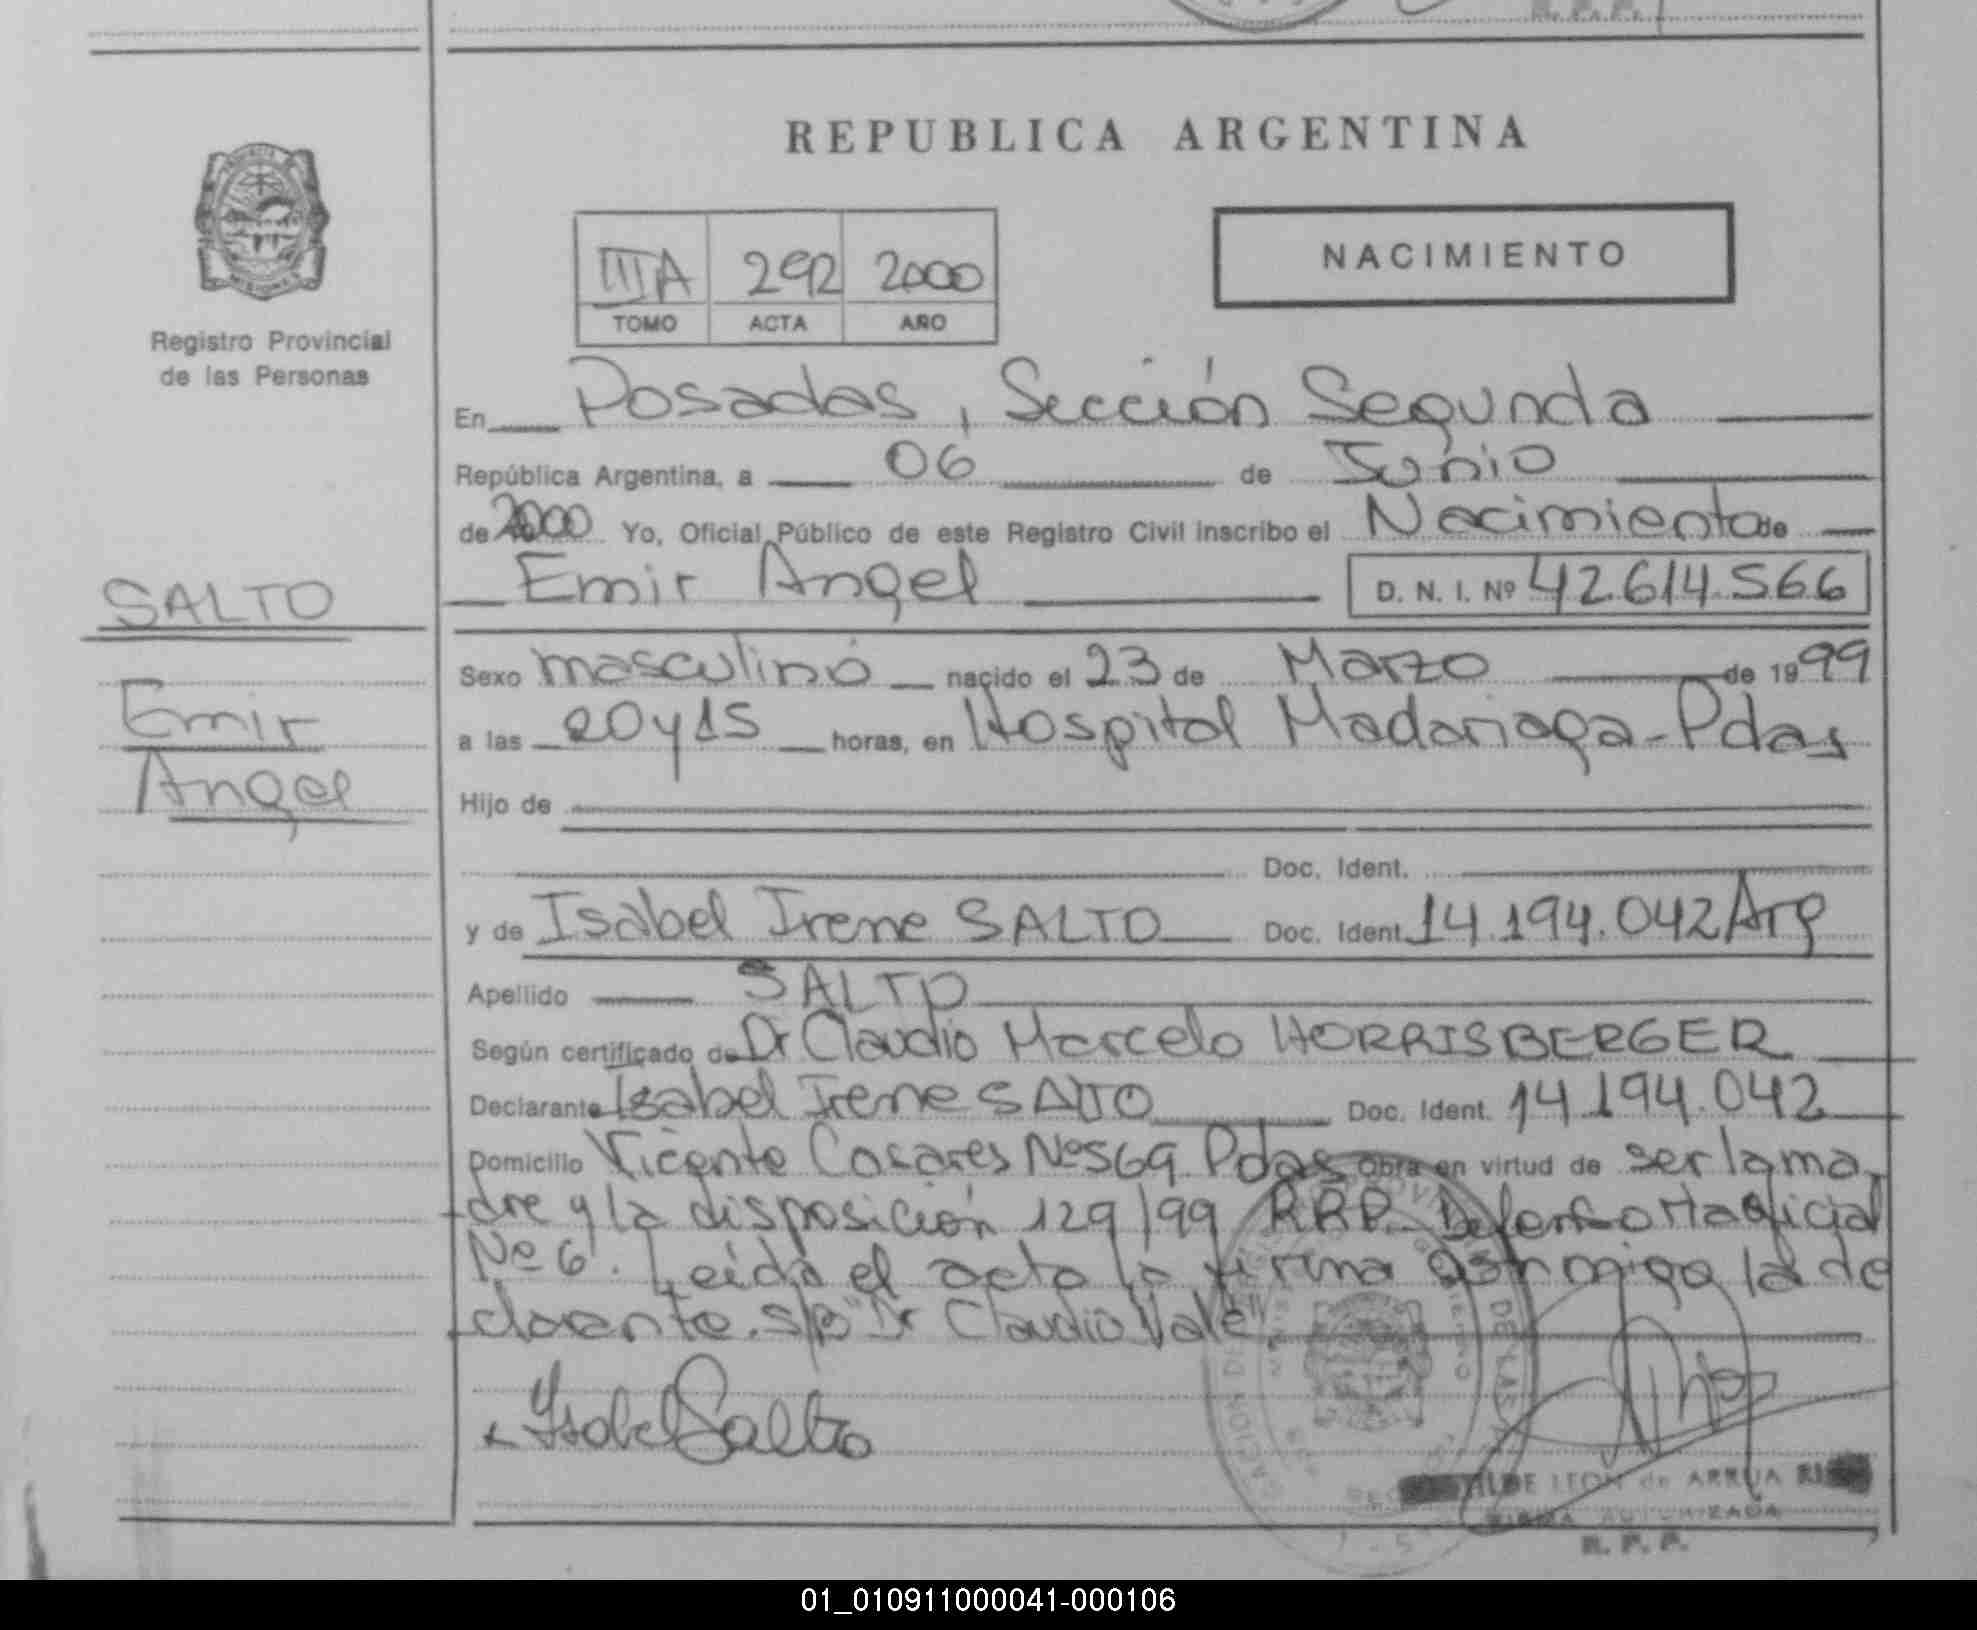 REPUBLICA ARGENTINA
NACIMIENTO
IIIA 292 2000
TOMO ACTA AÑO
Registro Provincial
de las Personas
En Posadas, Sección Segunda
República Argentina, a 06 de Junio
de 2000 Yo, Oficial Público de este Registro Civil inscribo el Nacimiento de
Emir Angel D. N. I. Nº 42.614.566
SALTO
Emir
Angel
Sexo masculino nacido el 23 de Marzo de 1999
a las 20 y 15 horas, en Hospital Madariaga - Pdas
Hijo de
Doc. Ident.
y de Isabel Irene SALTO Doc. Ident. 14.194.042 Arg
Apellido SALTO
Según certificado de Dr Claudio Marcelo HORRISBERGER
Declarante Isabel Irene SALTO Doc. Ident. 14.194.042
Domicilio Vicente Casares Nº 569 Pdas Obra en virtud de ser la ma
dre y la disposición 129/99 RPP. Defensoria oficial
Nº 6. Leida el acta la firma conmigo la de
clarante. s/p "Dr Claudio Vale"
Isabel Salto
LEON de ARRUA
FIRMA AUTORIZADA
R. P. P.
01_010911000041-000106